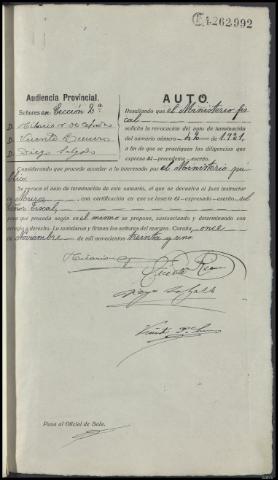 C1.262.992
Audiencia Provincial.
Señores en Sección 2ª
D. Hilario
D. Vicente
D. Diego Salgado
AUTO.
Resultando que el Ministerio fis-
cal
solicita la revocación del auto de terminación
del sumario número de 1.931,
a fin de que se practiquen las diligencias que
expresa el precedente escrito.
Considerando que procede acceder a lo interesado por el Ministerio pú-
blico
Se revoca el auto de terminación de este sumario, el que se devuelva al Juez instructor
de Muros con certificación en que se inserte el expresado escrito del
Señor Fiscal,
para que proceda según en el mismo se propone, sustanciando y determinando con
arreglo a derecho. Lo mandaron y firman los señores del margen. Coruña once
de Noviembre de mil novecientos treinta y uno
Pasa al Oficial de Sala.